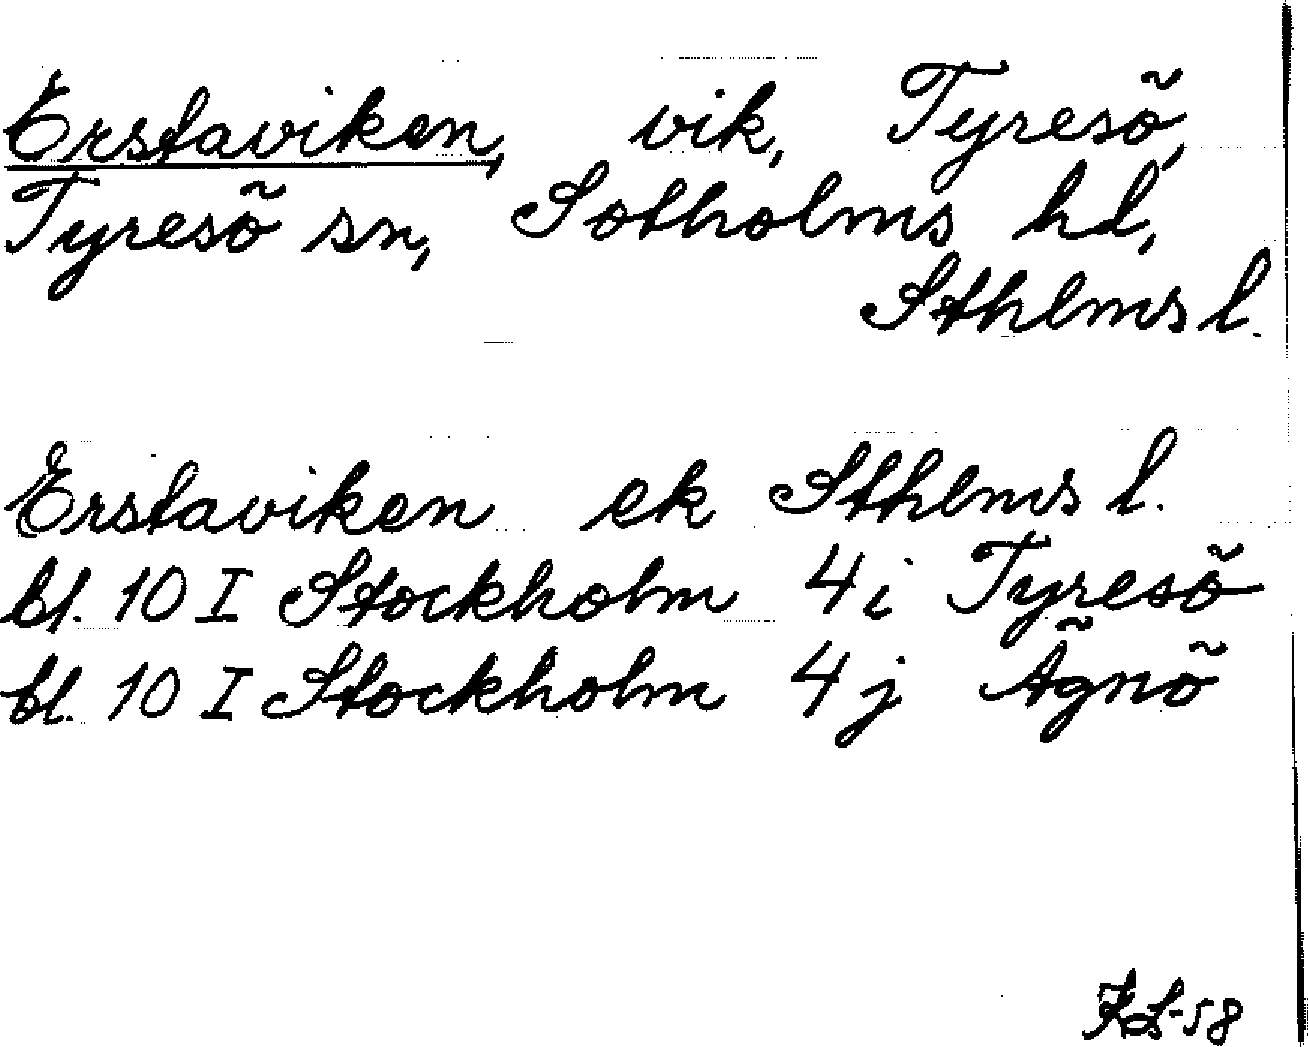 Erstaviken, vik, Tyresö,
Tyresö sn, Sotholms hd,
Sthlms l.
Erstaviken ek Sthlms l.
bl. 10 I Stockholm 4 i Tyresö
bl. 10 I Stockholm 4 j Ägnö
KL-58